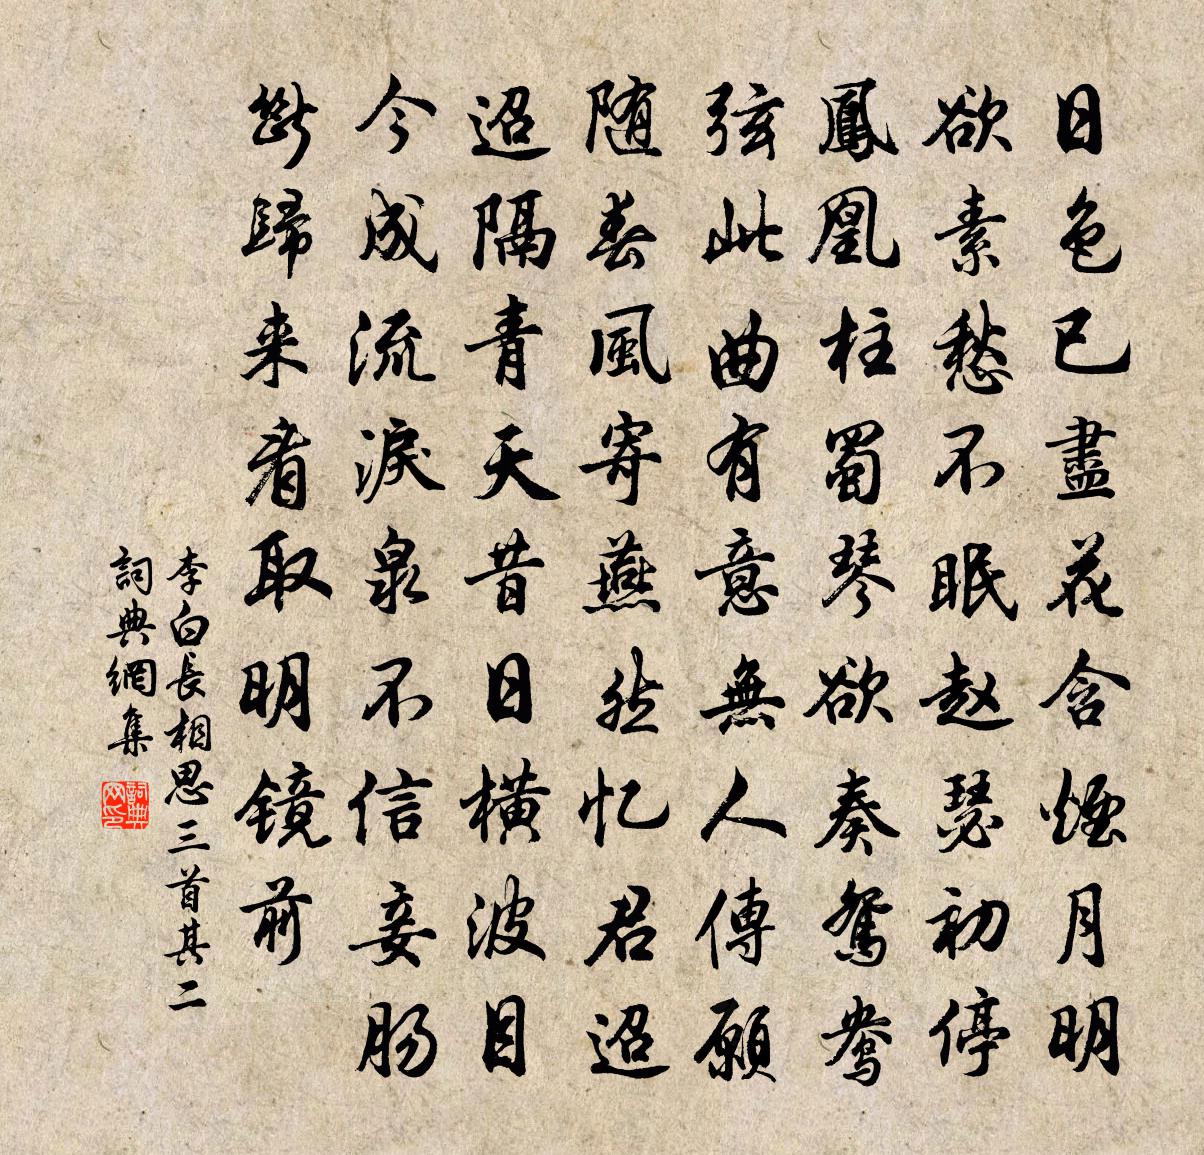 日色已盡花含煙月明
欲素愁不眠赵瑟初停
鳳凰柱蜀琴欲奏鴛鴦
弦此曲有意無人傳願
随春風寄燕然忆君迢
迢隔青天昔日横波目
今成流淚泉不信妾肠
斷歸来看取明镜前
李白長相思三首其二
詞典網集
詞典網印